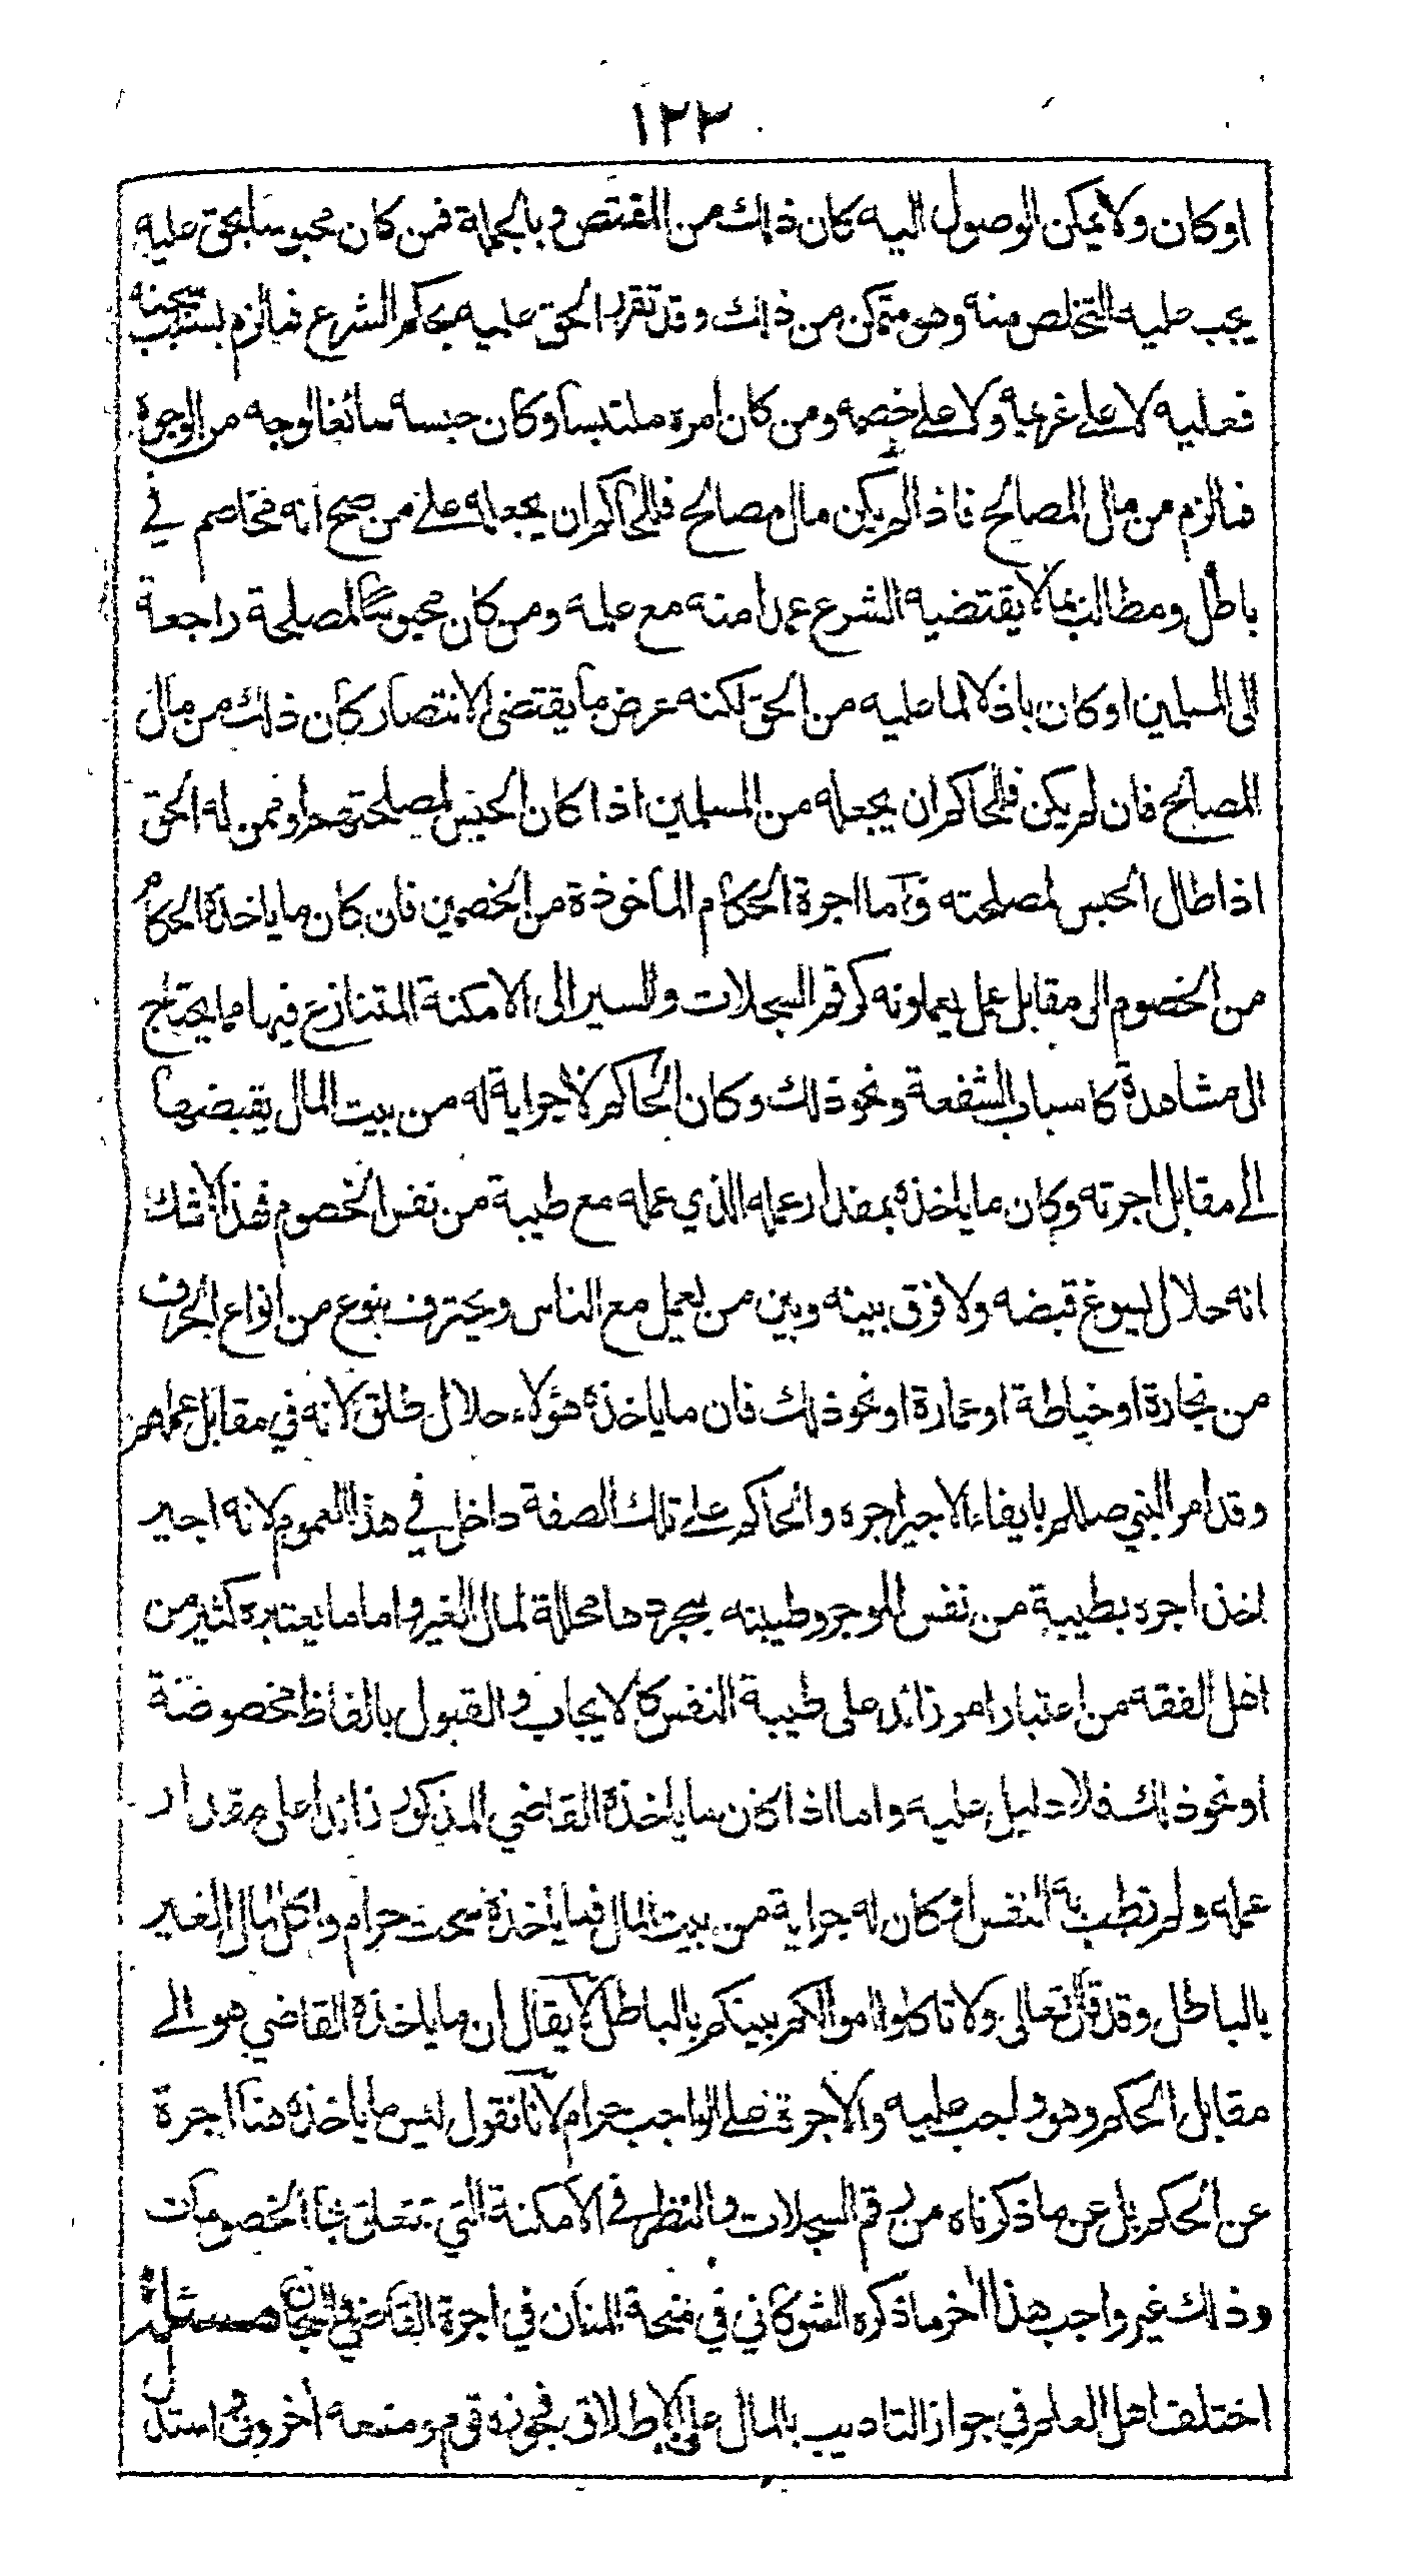 ١٢٣
او كان ولا يمكن الوصول اليه كان ذلك من المقتص وبالجملة فمن كان محبوسا بحق عليه
يجب عليه التخلص منه وهو متمكن من ذلك وقد تقرر الحق عليه بحكم الشرع فما لزم بسبب سجنه
فعليه لا على غريمه ولا على خصمه ومن كان امره ملتبسا وكان حبسه سائغا لوجه من الوجوه
فما لزم من مال المصالح فاذا لم يكن مال مصالح فللحاكم ان يجعله على من صح انه مخاصم في
باطل ومطالب بما لا يقتضيه الشرع عمدا منه مع علمه ومن كان محبوسا لمصلحة راجعة
الى المسلمين او كان باذلا لما عليه من الحق لكنه عرض ما يقتضى الانتصار كان ذلك من مال
المصالح فان لم يكن فللحاكم ان يجعله من المسلمين اذا كان الحبس لمصلحتهم او ممن له الحق
اذا طال الحبس لمصلحته وآما اجرة الحكام الماخوذة من الخصمين فان كان ما ياخذه الحكام
من الخصوم الى مقابل عمل يعملونه كرقم السجلات والسير الى الامكنة المتنازع فيها مما يحتاج
الى مشاهدة كاسباب الشفعة ونحو ذلك وكان الحاكم لا جراية له من بيت المال يقبضها
الے مقابل اجرته وكان ما ياخذه بمقدار عمله الذي عمله مع طيبة من نفس الخصوم فهذا لا شك
انه حلال يسوغ قبضه ولا فرق بينه وبين من يعمل مع الناس ويحترف بنوع من انواع الحرف
من نجارة او خياطة او عمارة او نحو ذلك فان ما ياخذه هؤلاء حلال طلق لانه في مقابل عملهم
وقد امر النبي صللم بايفاء الاجير اجره والحاكم على تلك الصفة داخل في هذا العموم لانه اجير
اخذ اجره بطيبة من نفس الموجر وطيبته بمجردها محللة لمال الغير واما ما يعتبره كثير من
اهل الفقه من اعتبار امر زائد على طيبة النفس كالايجاب والقبول بالفاظ مخصوصة
او نحو ذلك فلا دليل عليه واما اذا كان ما ياخذه القاضي المذكور زائدا على مقدار
عمله ولم تطب به النفس او كان له جراية من بيت المال فما ياخذه سحت حرام واكل لمال الغير
بالباطل وقد قال تعالى ولا تاكلوا اموالكم بينكم بالباطل لا يقال ان ما ياخذه القاضي هو الے
مقابل الحكم وهو واجب عليه والاجرة على الواجب حرام لآنا نقول ليس ما ياخذه هنا اجرة
عن الحكم بل عن ما ذكرناه من رقم السجلات والنظر في الامكنة التي تتعلق بها الخصومات
وذلك غير واجب هذا آخر ما ذكره الشوكاني في منحة المنان في اجرة القاضي والسجان مسئلة
اختلف اهل العلم في جواز التاديب بالمال على الاطلاق فجوزه قوم ومنعه آخرون واستدل